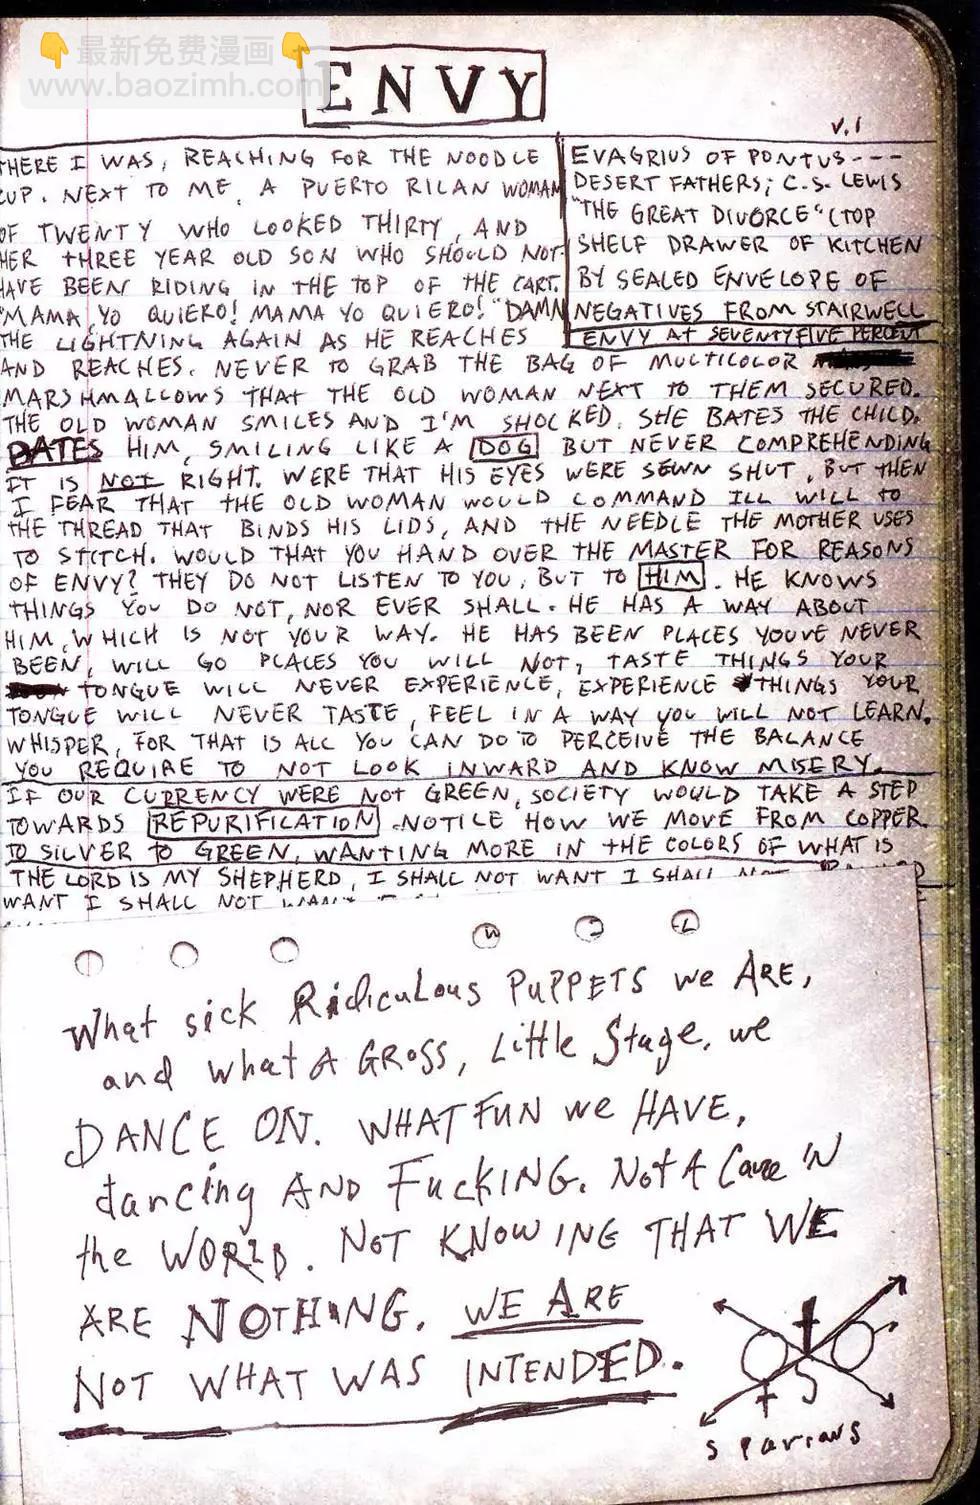 👇最新免费漫画👇
www.baozimh.com
ENVY
V.1
THERE I WAS, REACHING FOR THE NOODLE
CUP. NEXT TO ME, A PUERTO RICAN WOMAN
OF TWENTY WHO LOOKED THIRTY, AND
HER THREE YEAR OLD SON WHO SHOULD NOT
HAVE BEEN RIDING IN THE TOP OF THE CART.
"MAMA, YO QUIERO! MAMA YO QUIERO!" DAMN
THE LIGHTNING AGAIN AS HE REACHES
EVAGRIUS OF PONTUS---
DESERT FATHERS; C.S. LEWIS
"THE GREAT DIVORCE" (TOP
SHELF DRAWER OF KITCHEN
BY SEALED ENVELOPE OF
NEGATIVES FROM STAIRWELL
ENVY AT SEVENTYFIVE PERCENT
AND REACHES. NEVER TO GRAB THE BAG OF MULTICOLOR
MARSHMALLOWS THAT THE OLD WOMAN NEXT TO THEM SECURED.
THE OLD WOMAN SMILES AND I'M SHOCKED. SHE BATES THE CHILD.
BATES HIM, SMILING LIKE A DOG BUT NEVER COMPREHENDING
IT IS NOT RIGHT. WERE THAT HIS EYES WERE SEWN SHUT, BUT THEN
I FEAR THAT THE OLD WOMAN WOULD COMMAND ILL WILL TO
THE THREAD THAT BINDS HIS LIDS, AND THE NEEDLE THE MOTHER USES
TO STITCH. WOULD THAT YOU HAND OVER THE MASTER FOR REASONS
OF ENVY? THEY DO NOT LISTEN TO YOU, BUT TO HIM. HE KNOWS
THINGS YOU DO NOT, NOR EVER SHALL. HE HAS A WAY ABOUT
HIM, WHICH IS NOT YOUR WAY. HE HAS BEEN PLACES YOUVE NEVER
BEEN, WILL GO PLACES YOU WILL NOT, TASTE THINGS YOUR
TONGUE WILL NEVER EXPERIENCE, EXPERIENCE THINGS YOUR
TONGUE WILL NEVER TASTE, FEEL IN A WAY YOU WILL NOT LEARN.
WHISPER, FOR THAT IS ALL YOU CAN DO TO PERCEIVE THE BALANCE
YOU REQUIRE TO NOT LOOK INWARD AND KNOW MISERY.
IF OUR CURRENCY WERE NOT GREEN, SOCIETY WOULD TAKE A STEP
TOWARDS REPURIFICATION. NOTICE HOW WE MOVE FROM COPPER
TO SILVER TO GREEN, WANTING MORE IN THE COLORS OF WHAT IS
THE LORD IS MY SHEPHERD, I SHALL NOT WANT I SHALL NOT
WANT I SHALL NOT WANT
What sick Ridiculous PUPPETS we ARE,
and what A GROSS, Little Stage, we
DANCE ON. WHAT FUN we HAVE,
dancing AND FucKING. Not A Care 'N
the WORLD. NOT KNOWING THAT WE
ARE NOTHING. WE ARE
NOT WHAT WAS INTENDED.